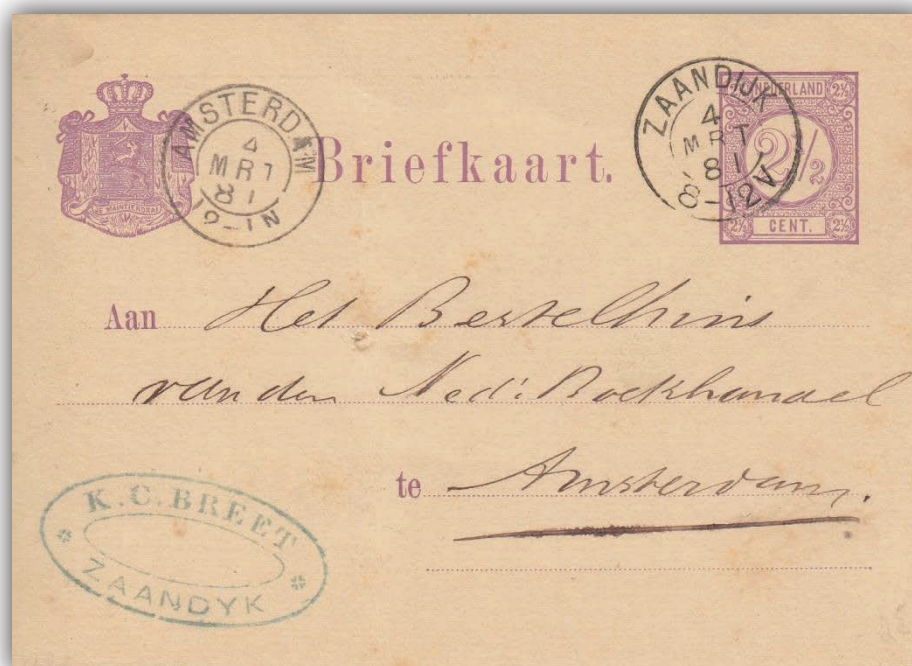 AMSTERDAM
4
MRT
81
12-1N
Briefkaart.
ZAANDIJK
4
MRT
81
8-12V
NEDERLAND 2½
2½
2½ CENT. 2½
Aan Het Bestelhuis
van den Ned: Boekhandel
te Amsterdam.
K. C. BREET
ZAANDYK